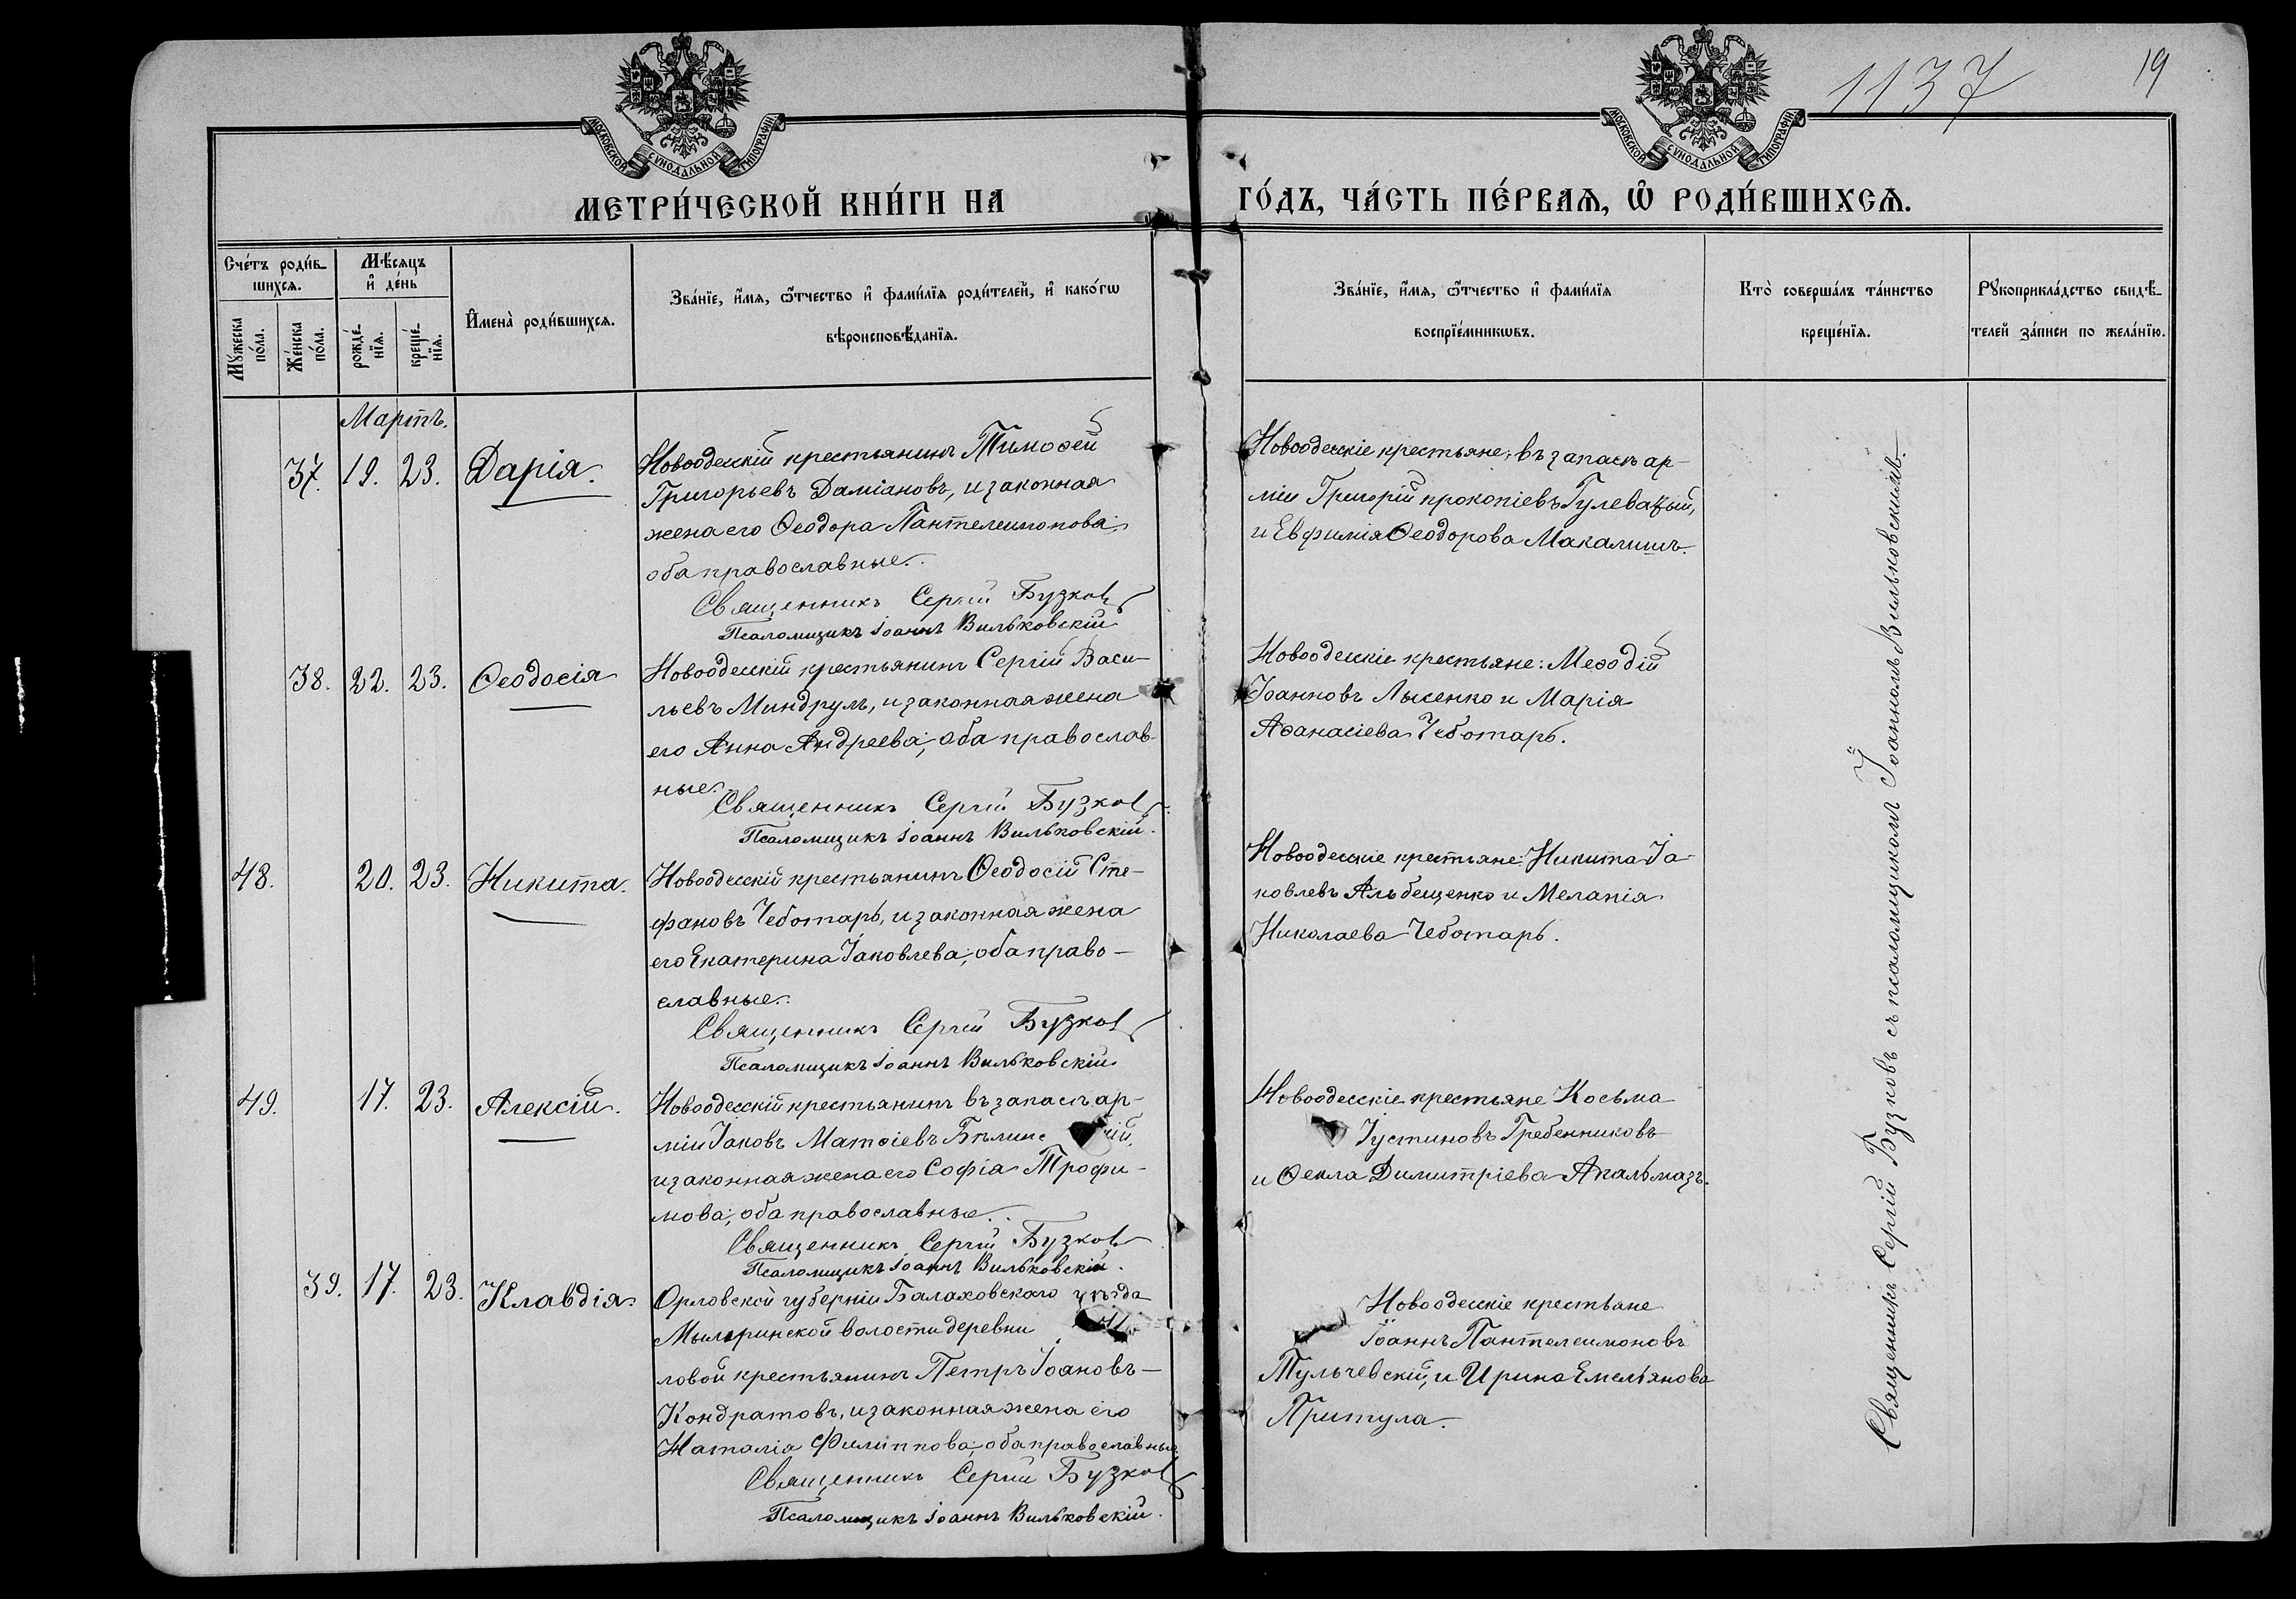 1137
19
МОСКОВСКОЙ СѴНОДАЛЬНОЙ ТИПОГРАФІИ
МОСКОВСКОЙ СѴНОДАЛЬНОЙ ТИПОГРАФІИ
МЕТРИ́ЧЕСКОЙ КНИ́ГИ НА
ГО́ДЪ, ЧА́СТЬ ПЕ́РВАѦ, Ѡ҆ РОДИ́ВШИХСѦ.
Сче́тъ роди́в-
шихсѧ.
Мꙋ́жеска по́ла.
Же́нска по́ла.
Мѣ́сѧцъ
и҆ де́нь
рожде́-
нїѧ.
креще́-
нїѧ.
И҆мена̀ роди́вшихсѧ.
Зва́нїе, и҆́мѧ, ѻ҆́тчество и҆ фами́лїѧ роди́телей, и҆ како́гѡ
вѣроисповѣ́данїѧ.
Зва́нїе, и҆́мѧ, ѻ҆́тчество и҆ фами́лїѧ
воспрїе́мникѡвъ.
Кто̀ соверша́лъ та́инство
креще́нїѧ.
Рꙋкоприкла́дство свидѣ́-
телей за́писи по жела́нїю.
Мартъ.
37. 19. 23. Дарія.
Новоодесскій крестьянинъ Тимоѳей
Григорьевъ Даміановъ, и законная
жена его Ѳеодора Пантелеимонова;
оба православные.
Священникъ Сергій Бузков
Псаломщикъ Іоаннъ Вильковскій
Новоодесскіе крестьяне, въ запасѣ ар-
міи Григорій Прокопіевъ Гулеватый,
и Евфимія Ѳеодорова Макалишъ.
38. 22. 23. Ѳеодосія
Новоодесскій крестьянинъ Сергій Васи-
льевъ Миндрулъ, и законная жена
его Анна Андреева; оба православ-
ные.
Священникъ Сергій Бузков
Псаломщикъ Іоаннъ Вильковскій.
Новоодесскіе крестьяне: Меѳодій
Іоанновъ Лысенко и Марія
Аѳанасіева Чеботарь.
48. 20. 23. Никита.
Новоодесскій крестьянинъ Ѳеодосій Сте-
фановъ Чеботарь, и законная жена
его Екатерина Іаковлева; оба право-
славные.
Священникъ Сергій Бузков
Псаломщикъ Іоаннъ Вильковскій
Новоодесскіе крестьяне: Никита Іа-
ковлевъ Альбещенко и Меланія
Николаева Чеботарь.
49. 17. 23. Алексій.
Новоодесскій крестьянинъ въ запасѣ ар-
міи Іаковъ Матѳіевъ
и законная жена его Софія Трофи-
мова; оба православные.
Священникъ Сергій Бузков
Псаломщикъ Іоаннъ Вильковскій.
Новоодесскіе крестьяне Косьма
Іустиновъ Гребенниковъ
и Ѳекла Димитріева Апальмазъ.
39. 17. 23. Клавдія.
Орловской губерніи Балаховскаго уѣзда
волости деревни
ловой крестьянинъ Петръ Іоановъ
Кондратовъ, и законная жена его
Наталія Филиппова; оба православные
Священникъ Сергій Бузков
Псаломщикъ Іоаннъ Вильковскій.
Новоодесскіе крестьяне
Іоаннъ Пантелеимоновъ
Тульчевскій, и Ирина Емельянова
Притула.
Священникъ Сергій Бузковъ съ псаломщикомъ Іоанномъ Вильковскимъ.